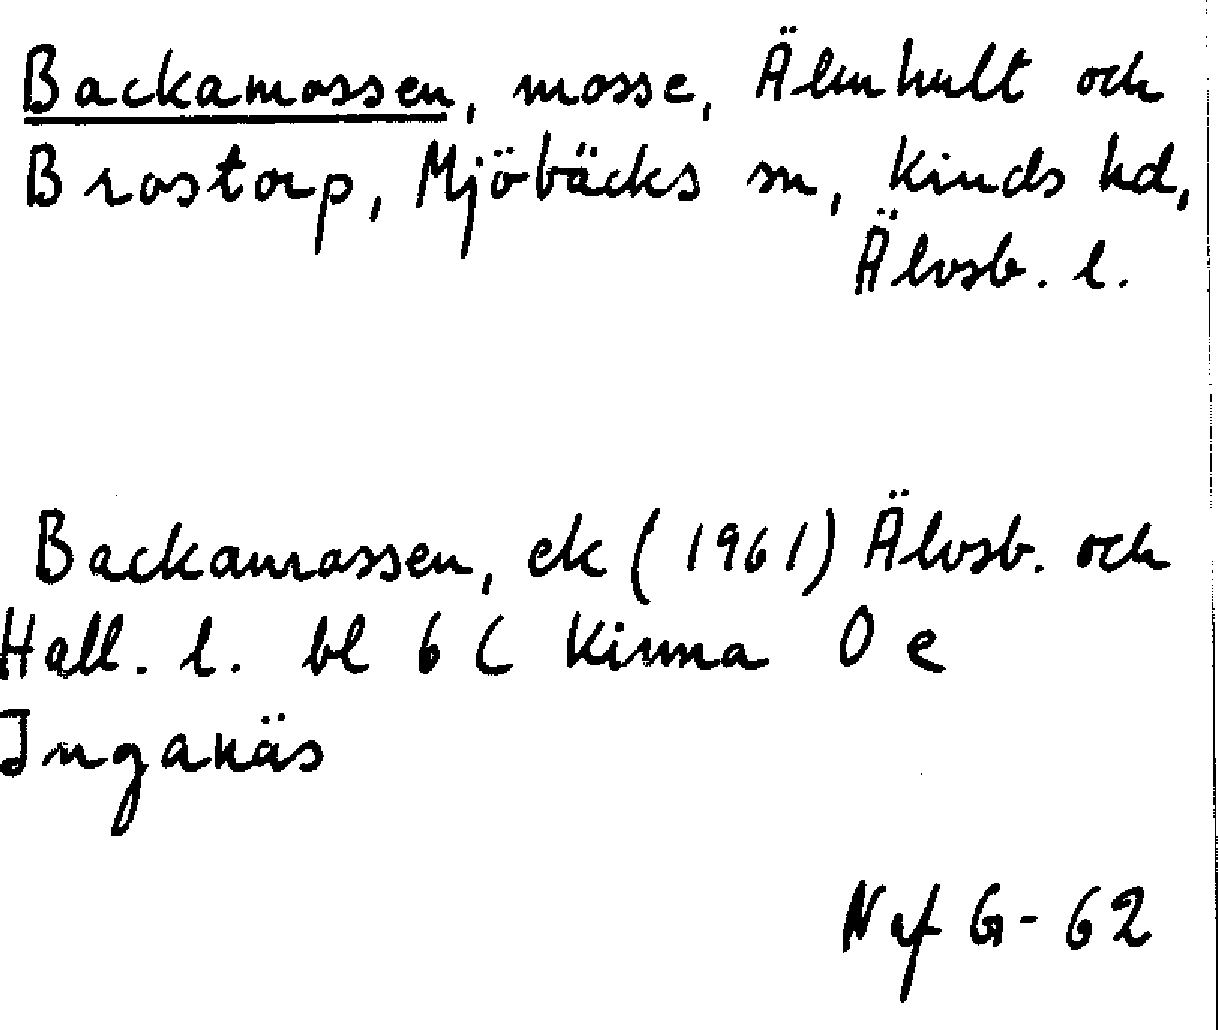 Backamossen, mosse, Älmhult och
Brostorp, Mjöbäcks sn, Kinds hd,
Älvsb. l.
Backamossen, ek (1961) Älvsb. och
Hall. l. bl 6 C Kinna 0 e
Inganäs
Naf G-62